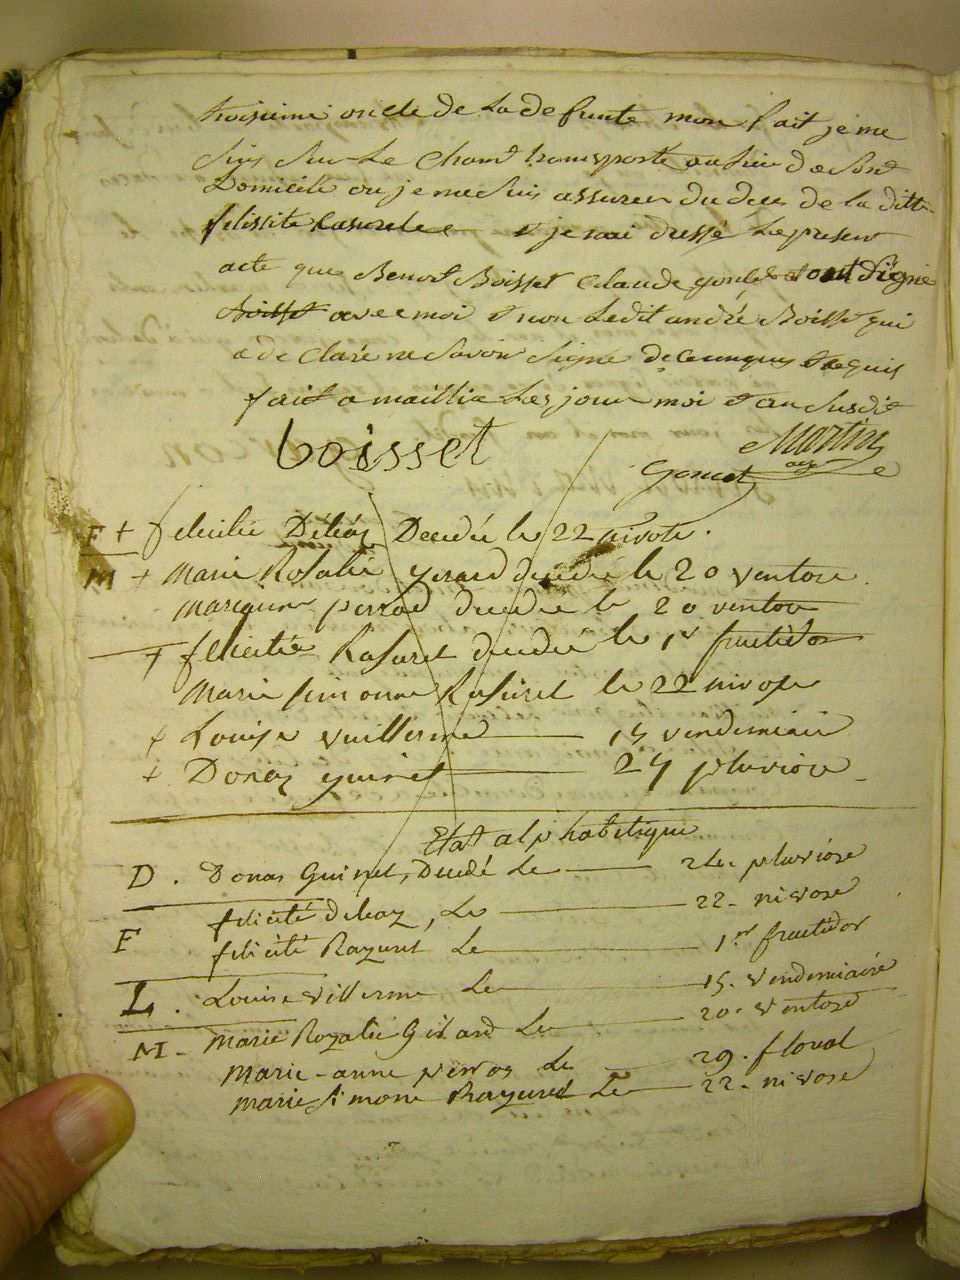 troisieme oncle de La defunte mon fait je me
Suis Sur Le Cham transporté au lieu de Sont
Domicile ou je me suis assurer du deces de la ditte
felissite Rasurele je nai dressé Le present
acte que Benoit Boisset Claude gonet ont Signe
Boisset avec moi et non Ledit andré Boisset qui
a de Claré ne Savoir Signe de Ce enquis
fait a maillia Les jour moi et an Susdit
boisset
Martin
Gonet
F + felicitée Déléaz Decedée le 22 nivose.
M + Marie Rosalie girard decedée le 20 ventose.
Marianne perrod decedée le 20 ventose
+ felicitée Rasuret decedée le 1r fructidor
Marie simonne Rasuret le 22 nivose
+ Louise vuillerme 15 vendemiair
+ Donaz guinet 24 pluviose
Etat alphabetique
D. Donas Guinet, Decedé Le 24. pluviose
felicité deleaz, Le 22. nivose
F felicité Razuret Le 1er fructidor
L. Louise villerme Le 15. Vendemiaire
M - Marie Rozalie Girard Le 20. Ventose
Marie-anne perroz Le 29. floreal
Marie Simone Razuret Le 22. nivose